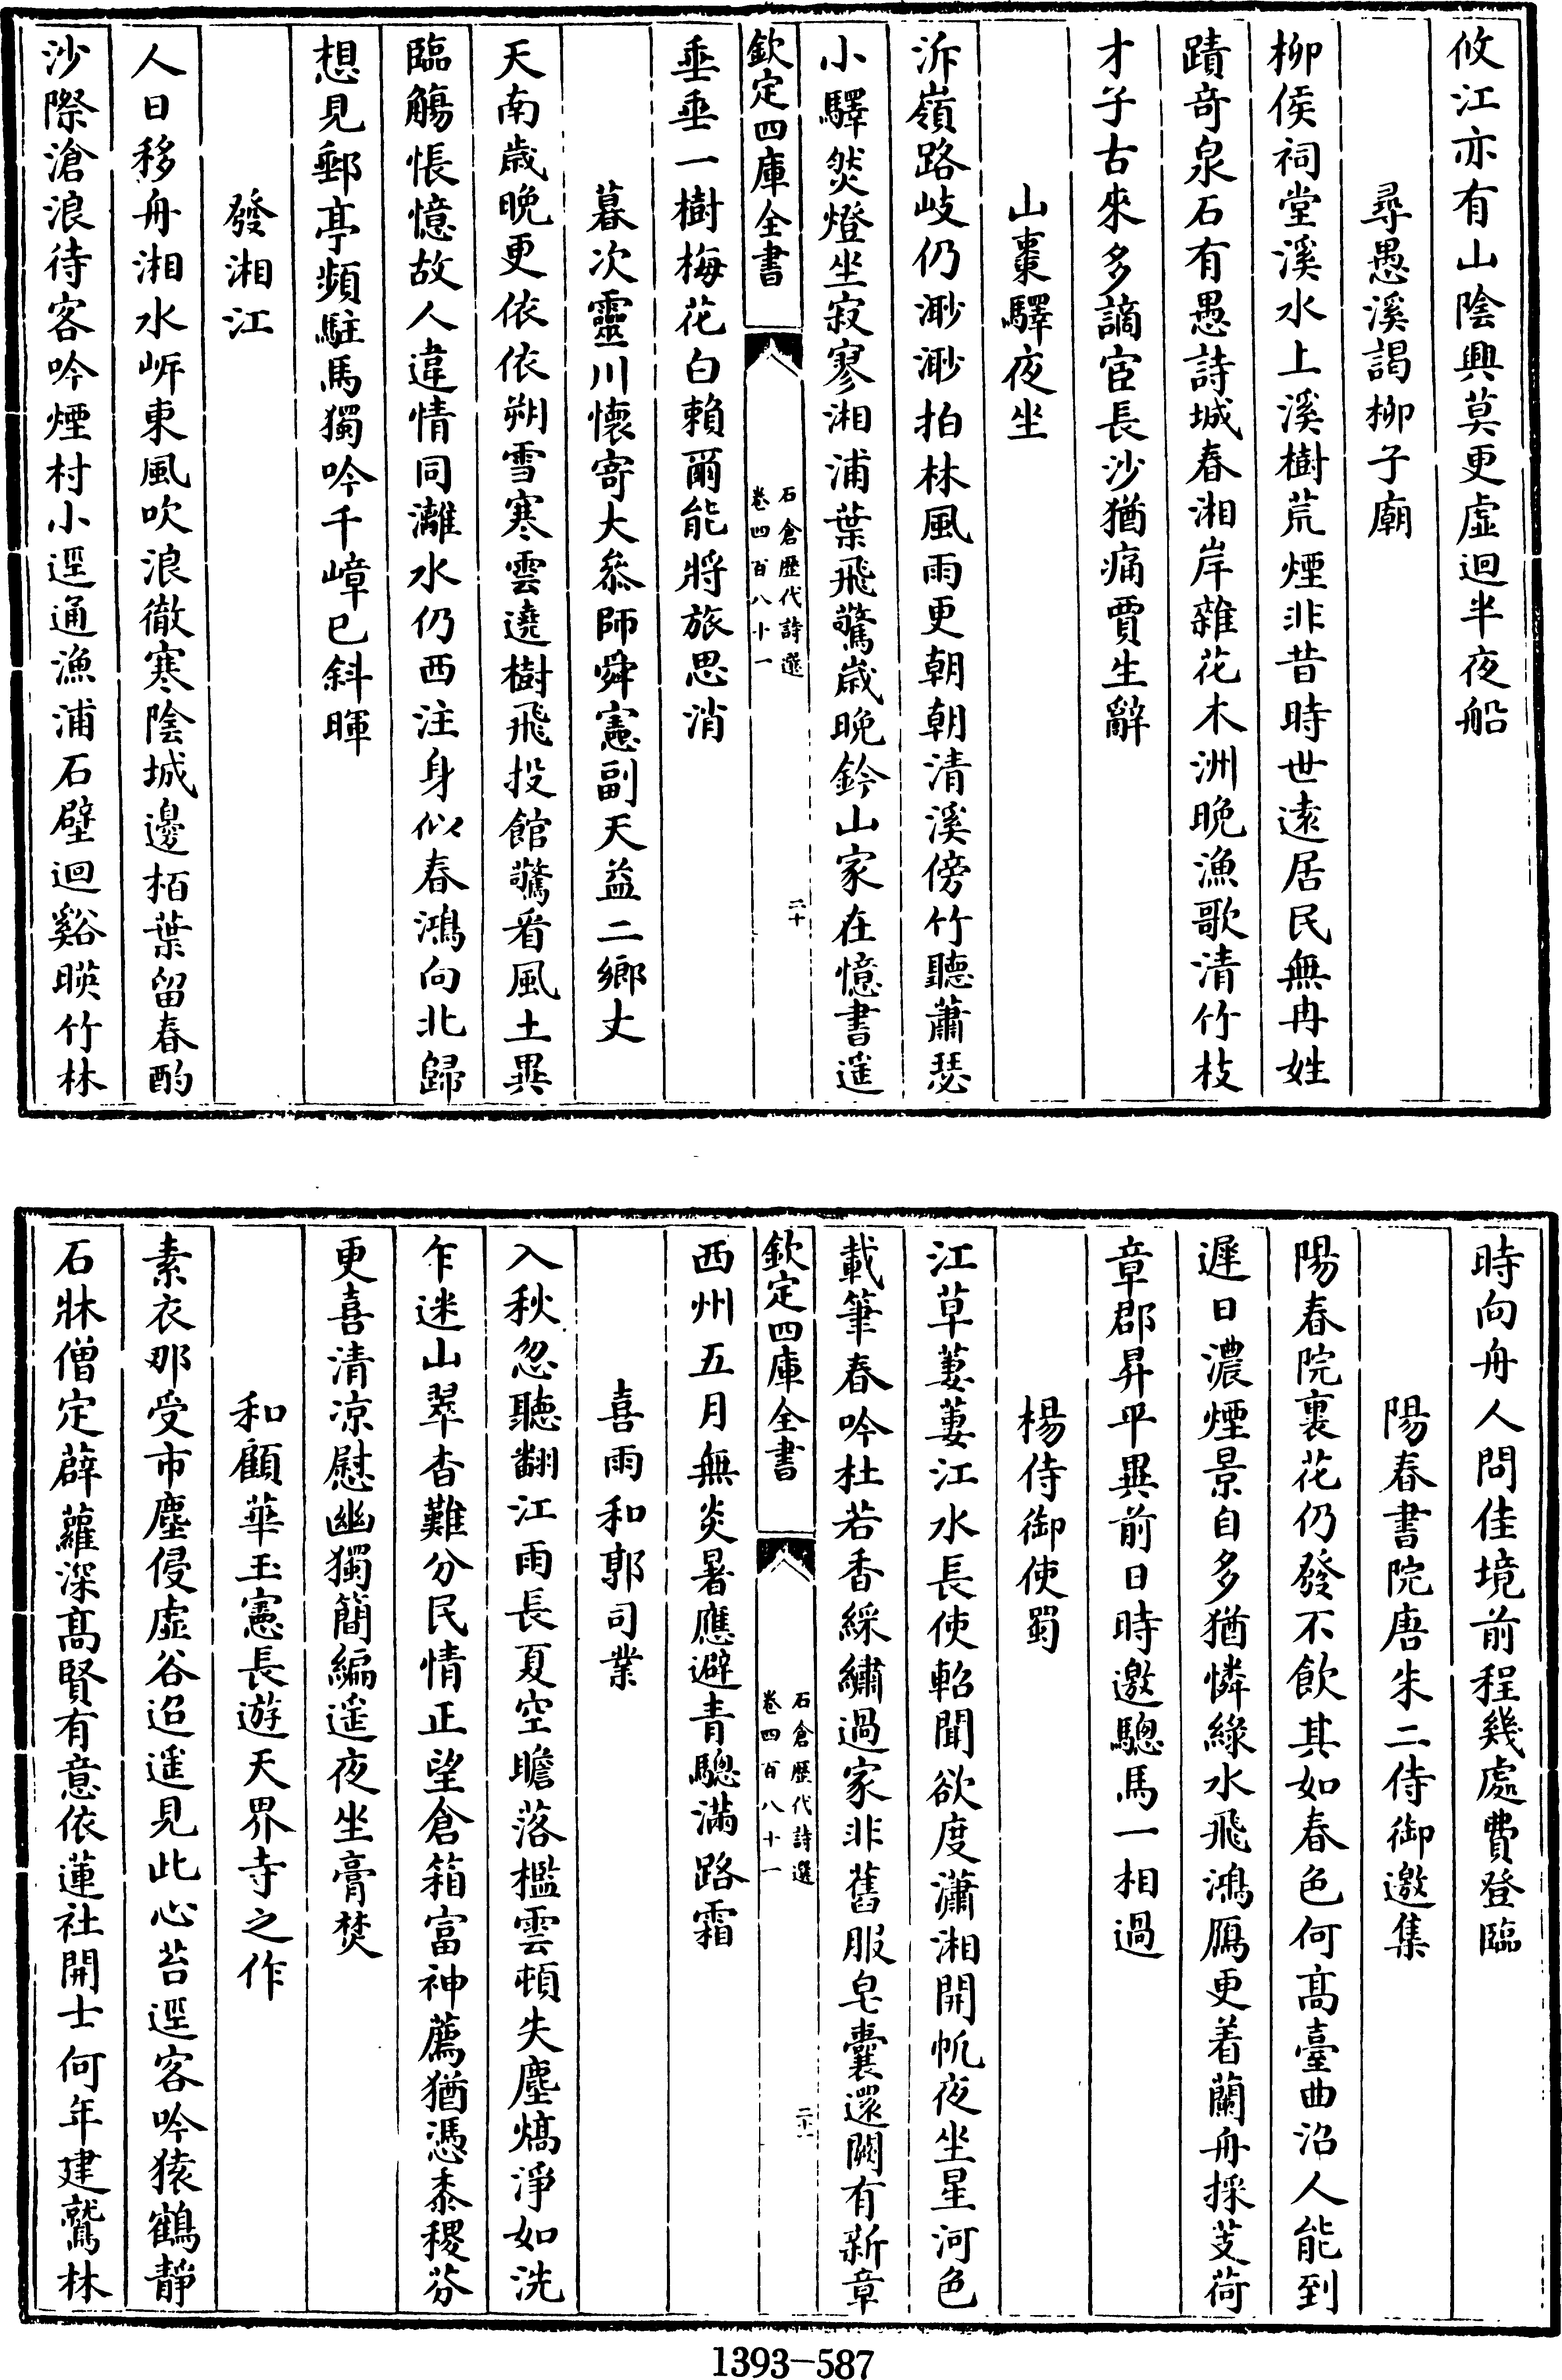 攸江亦有山陰興莫更虛迴半夜船
尋愚溪謁柳子廟
柳侯祠堂溪水上溪樹荒煙非昔時世遠居民無冉姓
蹟奇泉石有愚詩城春湘岸雜花木洲晚漁歌清竹枝
才子古來多謫宦長沙猶痛賈生辭
山棗驛夜坐
泝嶺路岐仍渺渺拍林風雨更朝朝清溪傍竹聽蕭瑟
小驛焚燈坐寂寥湘浦葉飛驚歲晚鈐山家在憶書遥
欽定四庫全書
石倉歷代詩選
卷四百八十一
二十
垂垂一樹梅花白賴爾能將旅思消
暮次靈川懷寄大叅師舜憲副天益二鄉丈
天南歲晚更依依朔雪寒雲遶樹飛投館驚看風土異
臨觴悵憶故人違情同灕水仍西注身似春鴻向北歸
想見郵亭頻駐馬獨吟千嶂已斜暉
發湘江
人日移舟湘水㟁東風吹浪徹寒陰城邊栢葉留春酌
沙際滄浪待客吟煙村小逕通漁浦石壁迴谿暎竹林
時向舟人問佳境前程幾處費登臨
陽春書院唐朱二侍御邀集
陽春院裏花仍發不飲其如春色何髙臺曲沼人能到
遲日濃煙景自多猶憐綠水飛鴻鴈更着蘭舟採芰荷
章郡昇平異前日時邀驄馬一相過
楊侍御使蜀
江草萋萋江水長使軺聞欲度瀟湘開帆夜坐星河色
載筆春吟杜若香綵繡過家非舊服皂囊還闕有新章
欽定四庫全書
石倉歷代詩選
卷四百八十一
二十一
西州五月無炎暑應避青驄滿路霜
喜雨和郭司業
入秋忽聽翻江雨長夏空瞻落檻雲頓失塵熇淨如洗
乍迷山翠杳難分民情正望倉箱富神薦猶憑黍稷芬
更喜清凉慰幽獨簡編遥夜坐膏焚
和顧華玉憲長遊天界寺之作
素衣那受市塵侵虛谷迢遥見此心苔逕客吟猿鶴靜
石牀僧定薜蘿深髙賢有意依蓮社開士何年建鷲林
1393—587